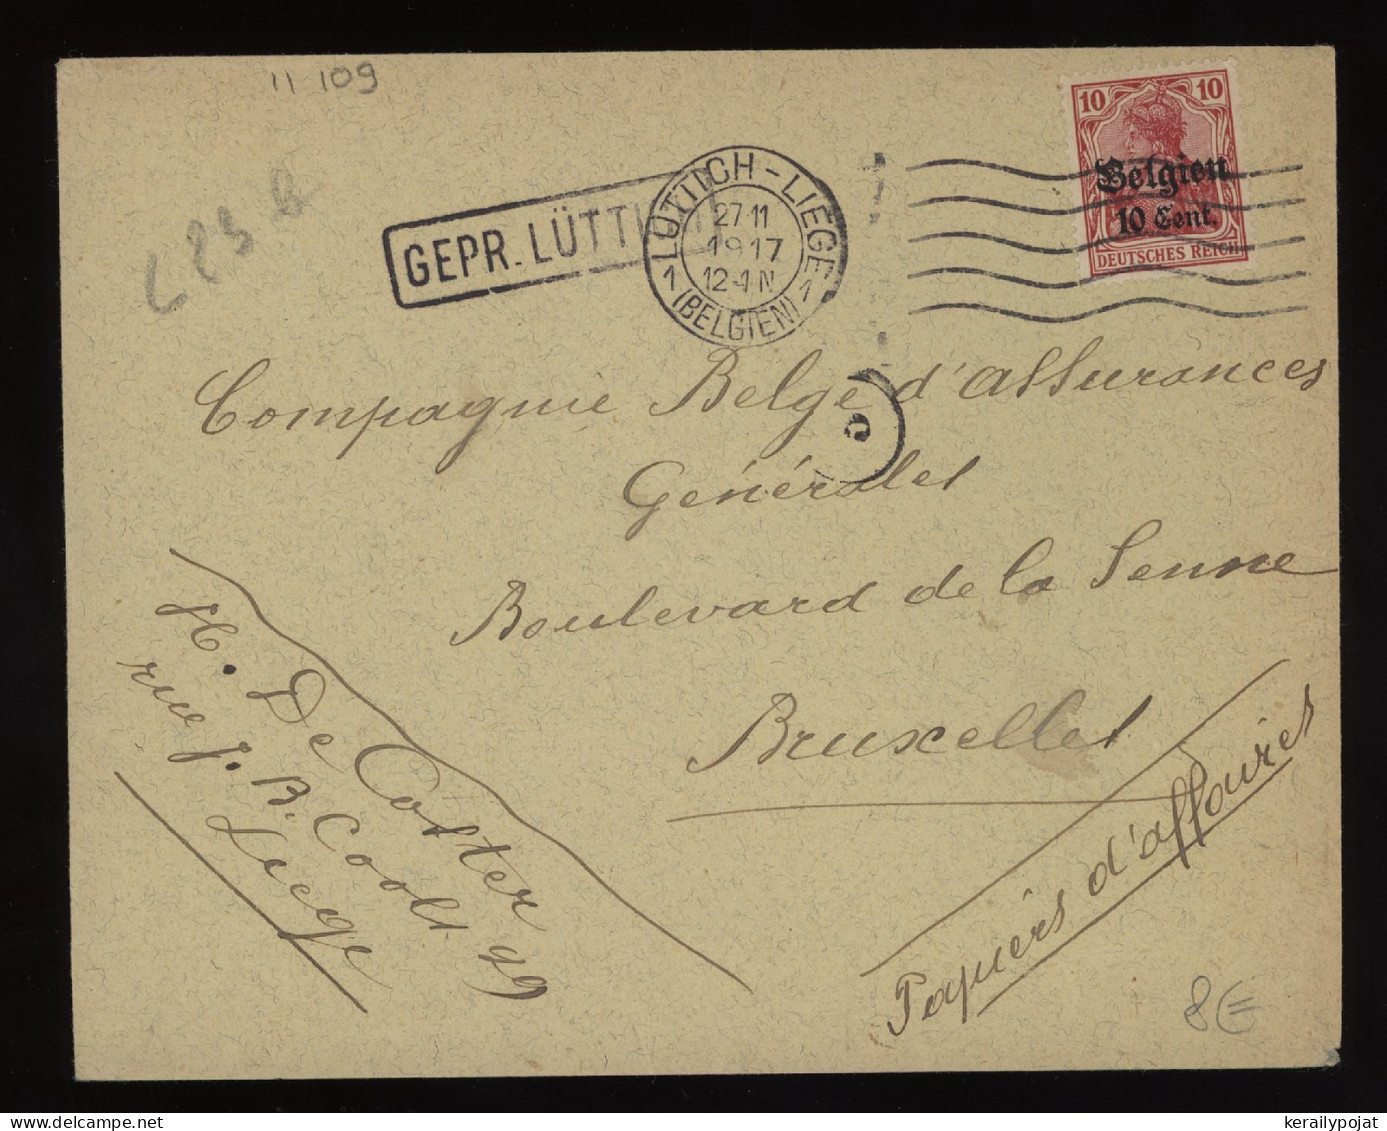 11 109
L 23 B
GEPR. LÜTTICH
LÜTTICH - LIÉGE
27 11
1917
12-1 N
1 (BELGIEN) 1
10 10
Belgien
10 Cent.
DEUTSCHES REICH
Compagnie Belge d'assurances
Générales
Boulevard de la Senne
Bruxelles
H. De Coster
rue J. B. Cools 49
Liege
Papiers d'affaires
8€
kerailypojat